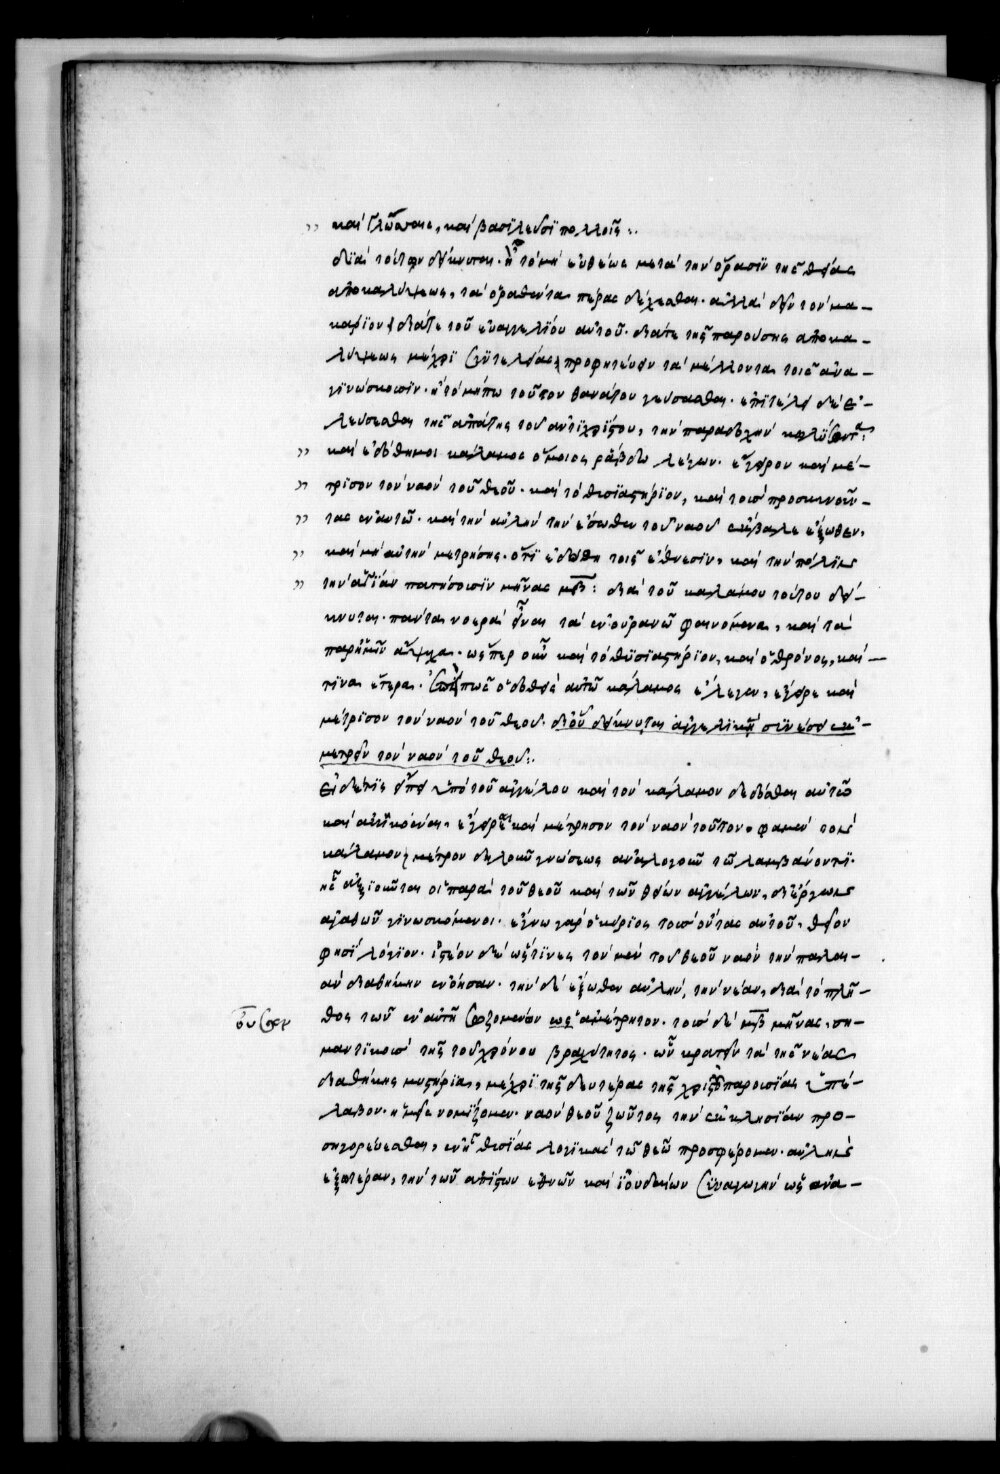 καὶ γλώσσαις, καὶ βασιλεῦσι πολλοῖς:
διὰ τούτων δείκνυται. ἢ τὸ μὴ εὐθέως μετὰ τὴν ὅρασιν τῆς θείας
ἀποκαλύψεως, τὰ ὁραθέντα πέρας δέχεσθαι. ἀλλὰ δεῖν τὸν μα-
κάριον διά τε τοῦ εὐαγγελίου αὐτοῦ. διά τε τῆς παρούσης ἀποκα-
λύψεως μέχρι συντελείας προφητεύειν τὰ μέλλοντα τοῖς ἀνα-
γινώσκουσιν. ἢ τὸ μήπω τοῦτον θανάτου γεύσασθαι. ἐπὶ τέλει δὲ ἐ-
λεύσεσθαι τῆς ἀπάτης τοῦ ἀντιχρίστου, τὴν παραδοχὴν κωλύσοντα:
καὶ ἐδόθη μοι κάλαμος ὅμοιος ῥάβδῳ λέγων. ἔγειρον καὶ μέ-
τρισον τὸν ναὸν τοῦ θεοῦ. καὶ τὸ θυσιαστήριον, καὶ τοὺς προσκυνοῦν-
τας ἐν αὐτῷ. καὶ τὴν αὐλὴν τὴν ἔσωθεν τοῦ ναοῦ ἔκβαλε ἔξωθεν,
καὶ μὴ αὐτὴν μετρήσῃς. ὅτι ἐδόθη τοῖς ἔθνεσιν, καὶ τὴν πόλιν
τὴν ἁγίαν πατήσουσιν μῆνας μβ: διὰ τοῦ καλάμου τούτου δεί-
κνυται. πάντα νοερὰ εἶναι τὰ ἐν οὐρανῷ φαινόμενα, καὶ τὰ
παρ' ἡμῖν ἄψυχα. ὥσπερ οὖν καὶ τὸ θυσιαστήριον, καὶ ὁ θρόνος, καί
τινα ἕτερα. πῶς ὁ δοθεὶς αὐτῷ κάλαμος ἔλεγεν, ἔγειρε καὶ
μέτρισον τὸν ναὸν τοῦ θεοῦ. δι' οὗ δείκνυται ἀγγελικῇ συνέσει ἐκ-
μετρεῖν τὸν ναὸν τοῦ θεοῦ:
Εἰ δέ τις εἴποι ὑπὸ τοῦ ἀγγέλου καὶ τὸν κάλαμον δεδόσθαι αὐτῷ
καὶ ἀκηκοέναι, ἔγειρε καὶ μέτρησον τὸν ναὸν τοῦτον. φαμὲν τὸν
κάλαμον μέτρον δηλοῦν γνώσεως ἀναλογοῦν τῷ λαμβάνοντι.
ἧς ἀξιοῦνται οἱ παρὰ τοῦ θεοῦ καὶ τῶν θείων ἀγγέλων, δι' ἔργων
ἀγαθῶν γινωσκόμενοι. ἔγνω γὰρ ὁ κύριος τοὺς ὄντας αὐτοῦ, θεῖόν
φησι λόγιον. ἰστέον δὲ ὥς τινες τὸν μὲν τοῦ θεοῦ ναὸν τὴν παλαι-
ὰν διαθήκην ἐνόησαν. τὴν δὲ ἔξωθεν αὐλὴν, τὴν νέαν, διὰ τὸ πλῆ-
θος τῶν ἐν αὐτῇ σωζομένων ὡς ἀμέτρητον. τοὺς δὲ μβ μῆνας, ση-
μαντικοὺς τῆς τοῦ χρόνου βραχύτητος. ὧν κρατεῖν τὰ τῆς νέας
διαθήκης μυστήρια, μέχρι τῆς δευτέρας τῆς χριστοῦ παρουσίας ὑπέ-
λαβον. ἡμεῖς νομίζομεν. ναὸν θεοῦ ζῶντος τὴν ἐκκλησίαν προ-
σηγορεύεσθαι, ἐν ᾗ θυσίας λογικὰς τῷ θεῷ προσφέρομεν. αὐλὴν
ἐξωτέραν, τὴν τῶν ἀπίστων ἐθνῶν καὶ ἰουδαίων συναγωγὴν ὡς ἀνα-